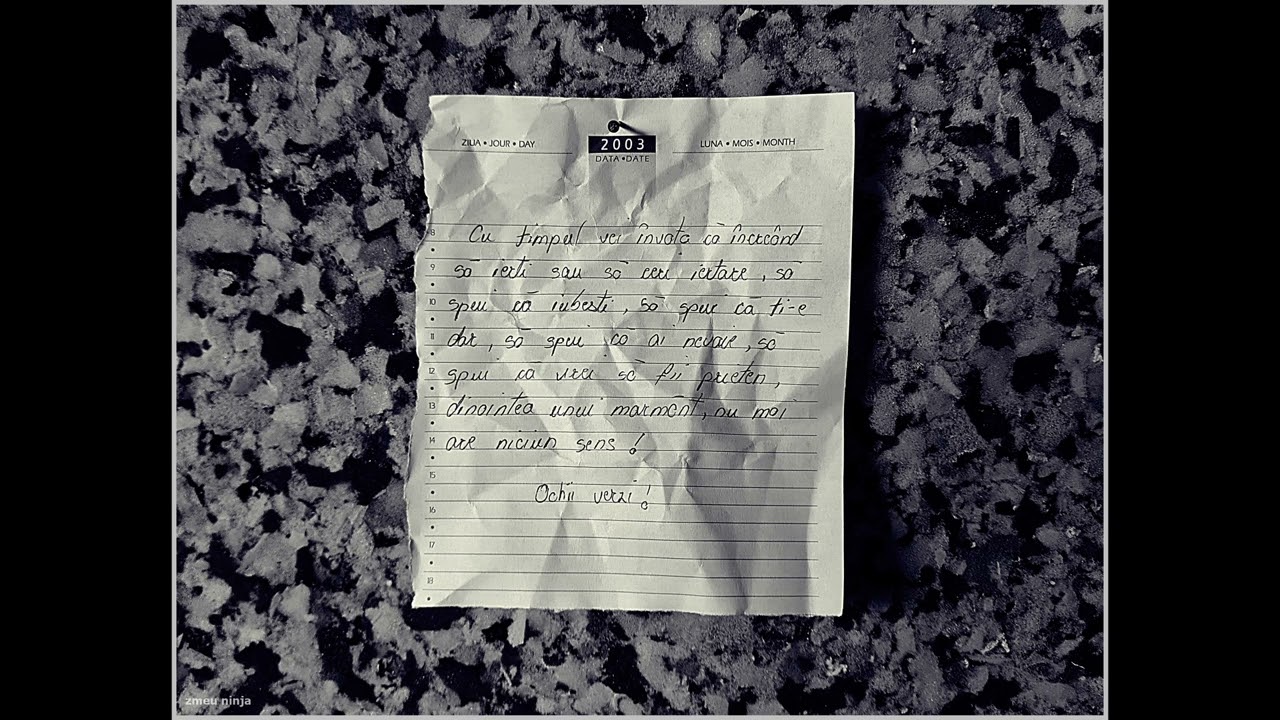 ZIUA • JOUR • DAY
2003
DATA • DATE
LUNA • MOIS • MONTH
8 Cu timpul vei învăța că încercând
9 să ierți sau să ceri iertare, să
10 spui că iubești, să spui că ți-e
11 dor, să spui că ai nevoie, să
12 spui că vrei să fii prieten,
13 dinaintea unui mormânt, nu mai
14 are niciun sens!
15
Ochii verzi!
16
17
18
zmeu ninja